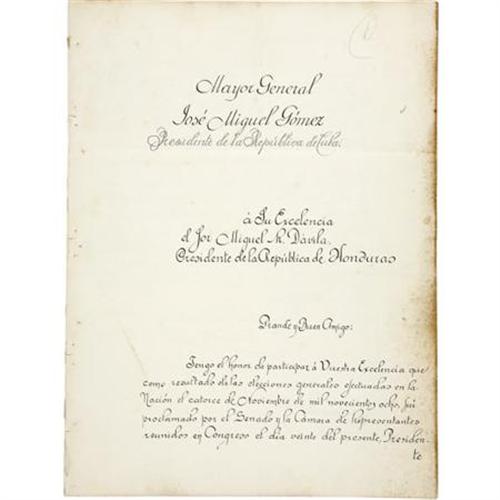 Mayor General
José Miguel Gómez
Presidente de la República de Cuba.
á Su Excelencia
el Sor Miguel R. Dávila.
Presidente de la República de Honduras
Grande y Buen Amigo:
Tengo el honor de participar á Vuestra Excelencia que
como resultado de las elecciones generales efectuadas en la
Nación el catorce de Noviembre de mil novecientos ocho, fuí
proclamado por el Senado y la Cámara de Representantes
reunidos en Congreso el día veinte del presente, Presiden-
te